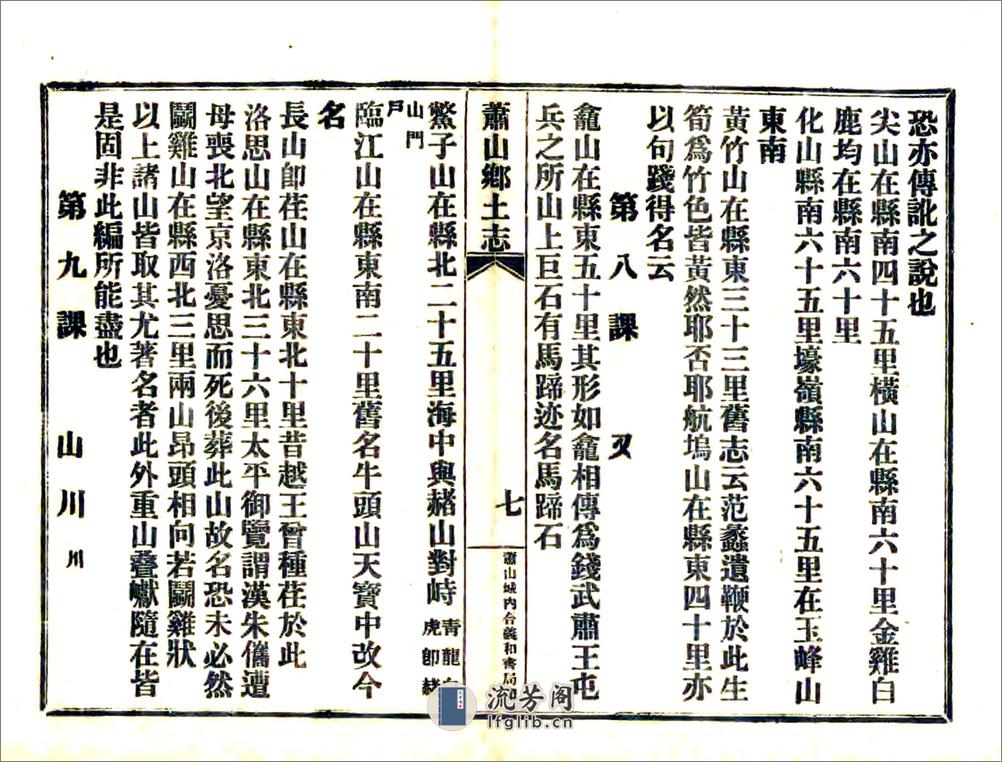 恐亦傳訛之說也
尖山在縣南四十五里橫山在縣南六十里金雞白
鹿均在縣南六十里
化山縣南六十五里壕嶺縣南六十五里在玉峰山
東南
黃竹山在縣東三十三里舊志云范蠡遺鞭於此生
筍爲竹色皆黃然耶否耶航塢山在縣東四十里亦
以句踐得名云
第八課 又
龕山在縣東五十里其形如龕相傳爲錢武肅王屯
兵之所山上巨石有馬蹄迹名馬蹄石
蕭山鄉土志
七
蕭山城內合義和書局
鱉子山在縣北二十五里海中與赭山對峙青龍
虎卽赭
山門
戶
臨江山在縣東南二十里舊名牛頭山天寶中改今
名
長山卽荏山在縣東北十里昔越王曾種荏於此
洛思山在縣東北三十六里太平御覽謂漢朱儁遭
母喪北望京洛憂思而死後葬此山故名恐未必然
鬬雞山在縣西北三里兩山昂頭相向若鬬雞狀
以上諸山皆取其尤著名者此外重山疊巘隨在皆
是固非此編所能盡也
第九課 山川 川
流芳阁
lfglib.cn